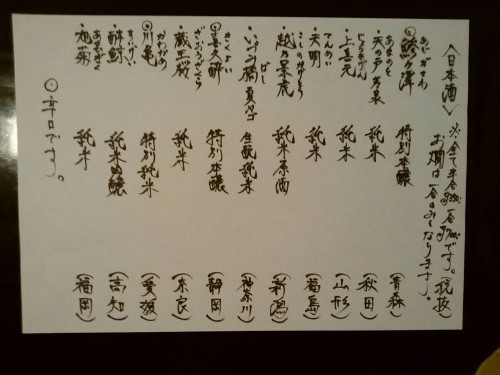 〈日本酒〉 ※全て半合 一合 です。税抜
お燗は一合のみとなります。
あじがさわ
◎鰺ヶ澤 特別本醸 (青森)
あまのと
・天の戸 純米 (秋田)
じょうきげん
・上喜元 純米 (山形)
てんめい
・天明 純米 (福島)
こしのかげとら
・越乃景虎 純米原酒 (新潟)
ばし
・いづみ橋 生酛純米 (神奈川)
きくよい
◎喜久酔 特別本醸 (静岡)
ざおうざくら
・蔵王桜 純米 (奈良)
かわがめ
◎川亀 特別純米 (愛媛)
すいげい
・酔鯨 純米吟醸 (高知)
あさひぎく
・旭菊 純米 (福岡)
◎辛口です。